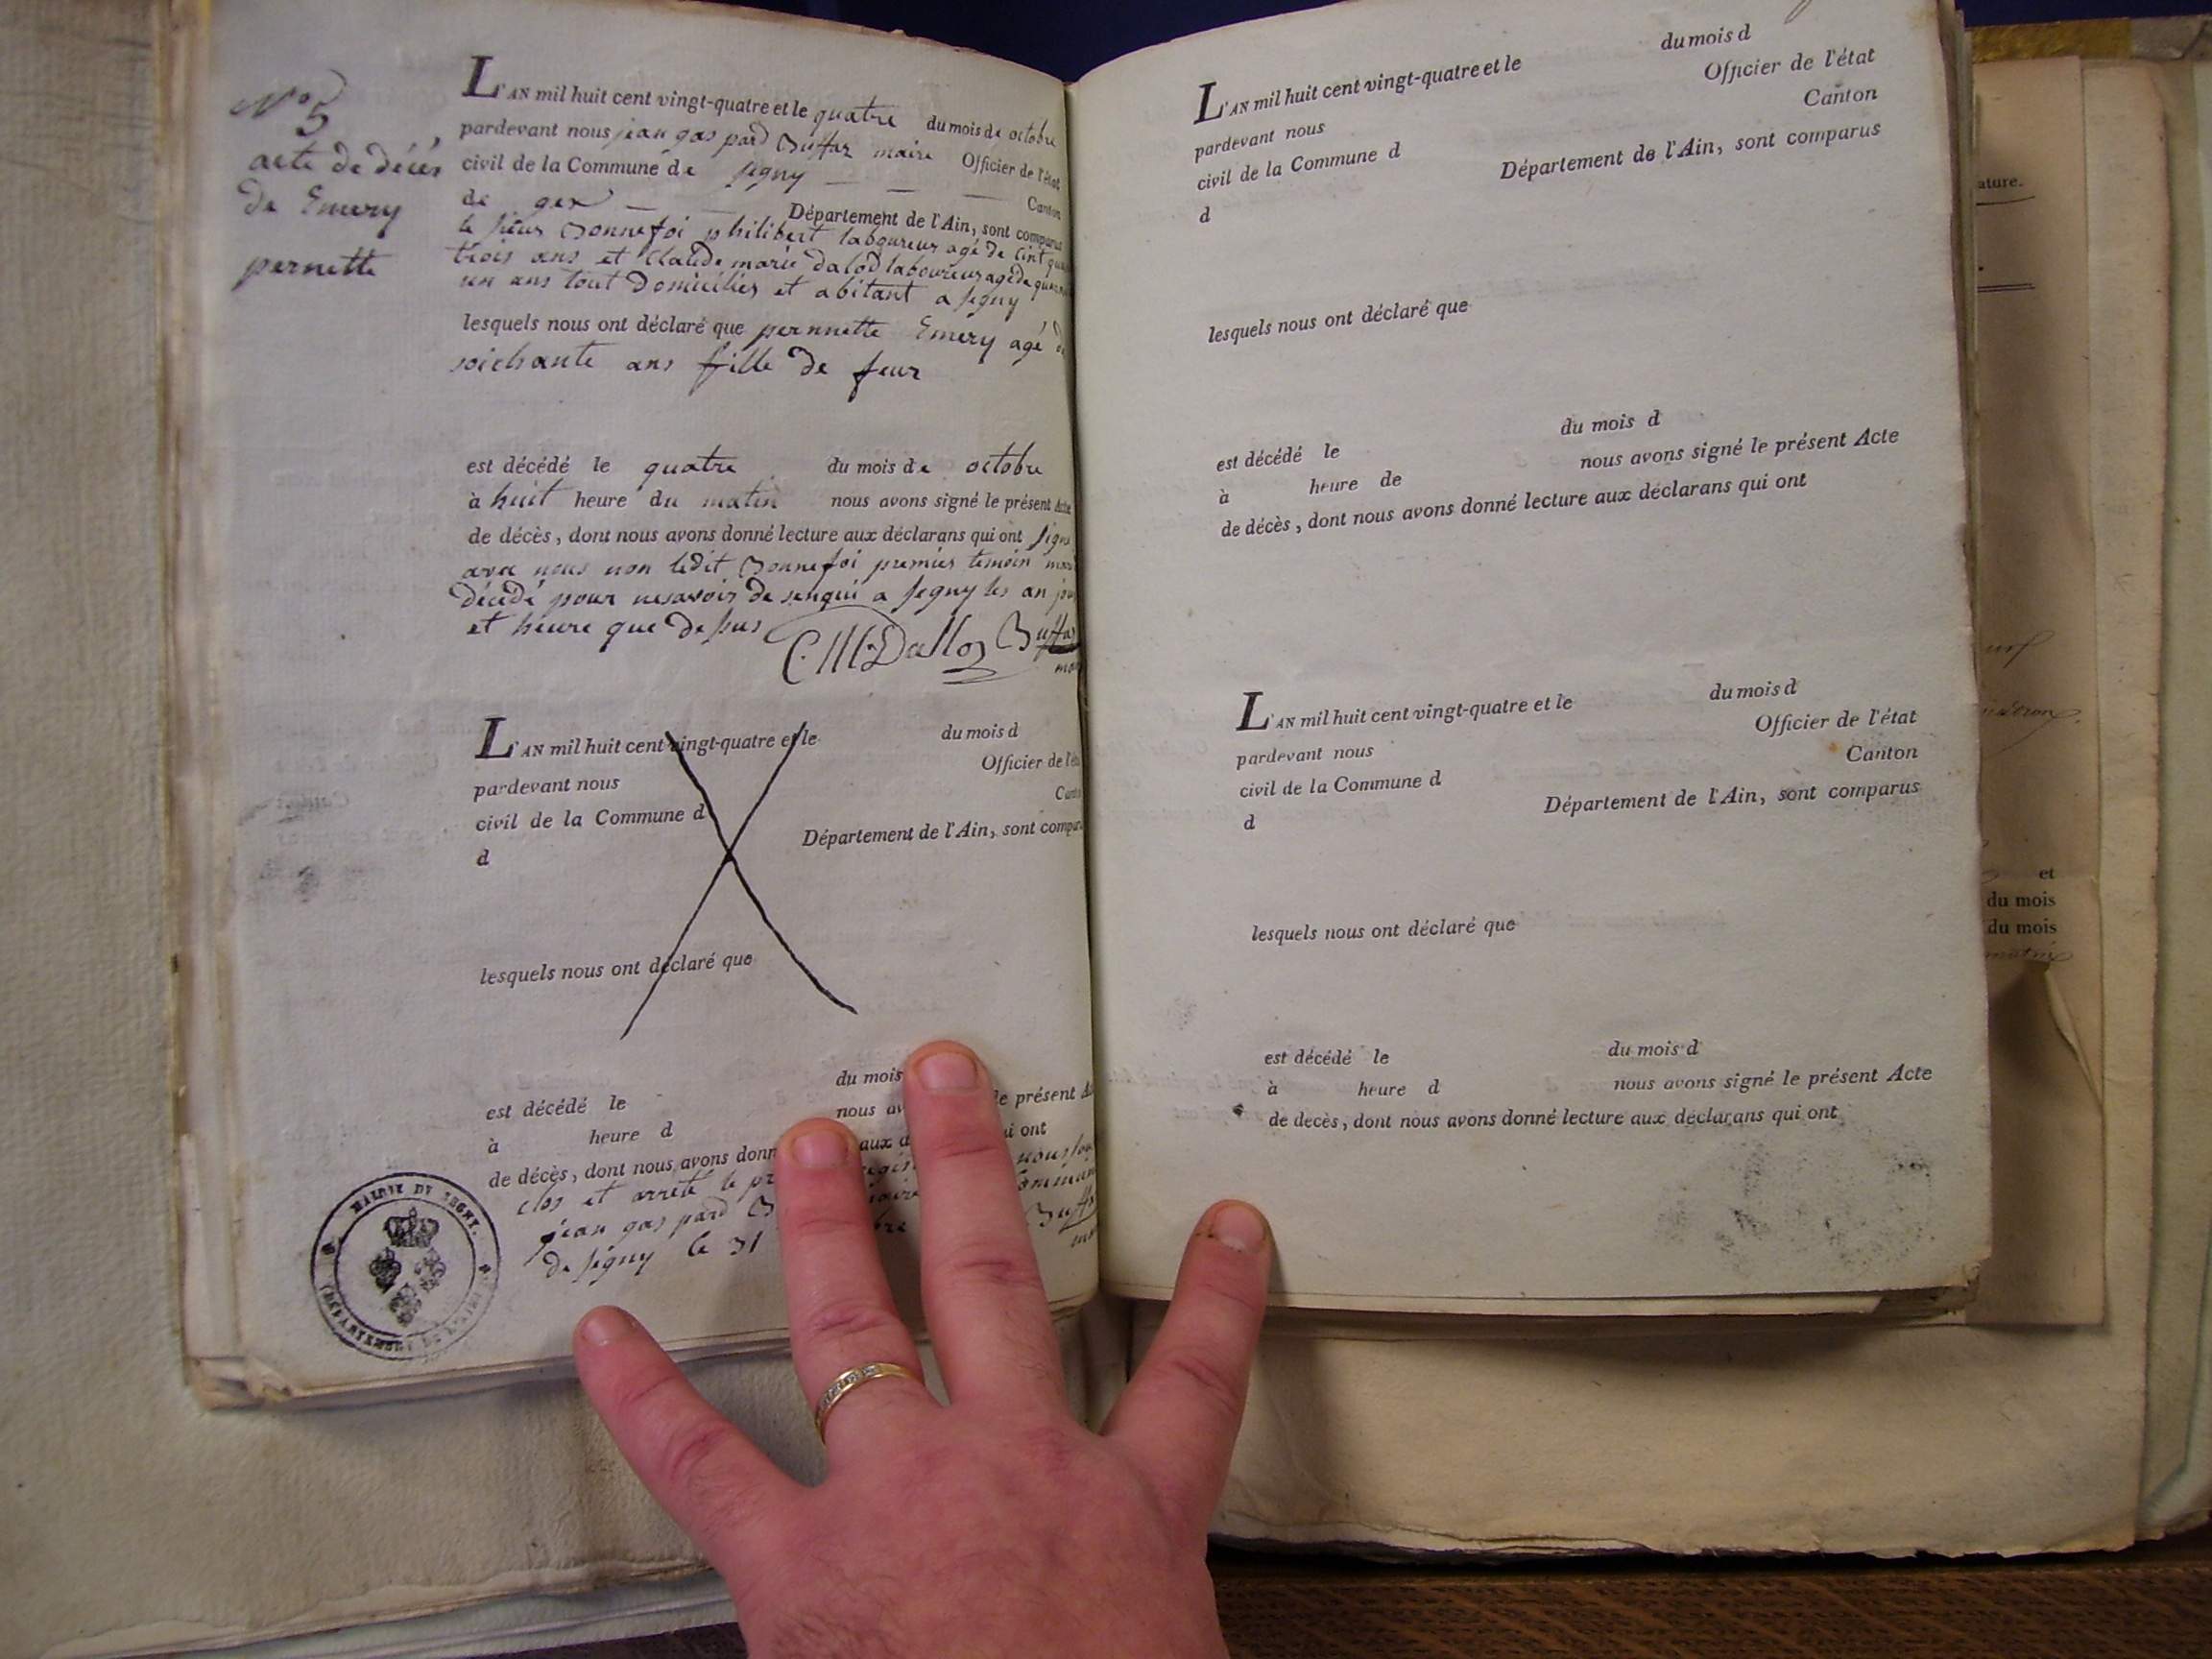 N° 5
acte de décés
de Emery
pernette
L'AN mil huit cent vingt-quatre et le quatre du mois de octobre
pardevant nous jean gas pard Buffaz maire Officier de l'état
civil de la Commune de segny Canton
de gex Département de l'Ain, sont comparus
le sieur Bonnefoi philibert laboureur agé de cint
trois ans et Claude marie dalod laboureur agé de
un ans tout Domiciliés et abitant a segny
lesquels nous ont déclaré que pernnette Emery agé de
soichante ans fille de feur
est décédé le quatre du mois de octobre
à huit heure du matin nous avons signé le présent Acte
de décès, dont nous avons donné lecture aux déclarans qui ont signé
avec nous non ledit Bonnefoi premier temoin
décédé pour nesavoir de senqui a segny les an jour
et heure que de sus
C. M. Dalloz Buffaz
L'AN mil huit cent vingt-quatre et le du mois d
pardevant nous Officier de l'état
civil de la Commune d
d Département de l'Ain, sont
lesquels nous ont déclaré que
est décédé le du mois
à heure d nous le présent
de décès, dont nous avons aux ont
clos et arrete le
jean gas pard
de segny le 31
MAIRIE DE SEGNY.
DÉPARTEMENT DE L'AIN
L'AN mil huit cent vingt-quatre et le du mois d
pardevant nous Officier de l'état
civil de la Commune d Canton
d Département de l'Ain, sont comparus
lesquels nous ont déclaré que
est décédé le du mois d
à heure de nous avons signé le présent Acte
de décès, dont nous avons donné lecture aux déclarans qui ont
L'AN mil huit cent vingt-quatre et le du mois d
pardevant nous Officier de l'état
civil de la Commune d Canton
d Département de l'Ain, sont comparus
lesquels nous ont déclaré que
est décédé le du mois d
à heure d nous avons signé le présent Acte
de decès, dont nous avons donné lecture aux déclarans qui ont
ature.
et
du mois
du mois